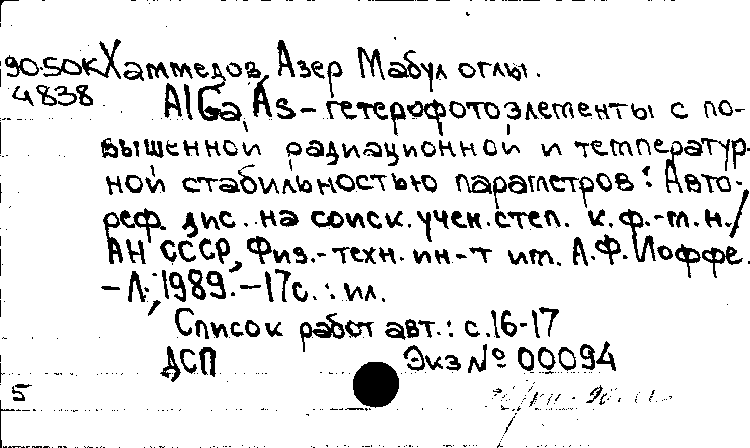 90-50К Хаммедов, Азер Мабул оглы.
4838 AlGa, As - гетерофотоэлементы с по-
вышенной радиационной и температур-
ной стабильностью параметров: Авто-
реф. дис. на соиск. учен. степ. к.ф.-м.н./
АН СССР, Физ.-техн. ин-т им. А.Ф. Иоффе.
- Л., 1989. - 17с. : ил.
Список работ авт.: с.16-17
ДСП Экз № 00094
5